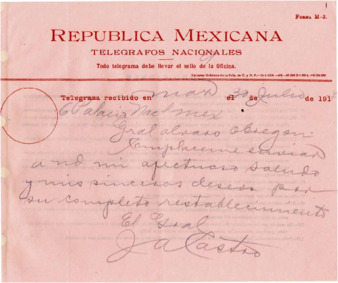 FORMA M-3.
REPUBLICA MEXICANA
TELEGRAFOS NACIONALES
Todo telegrama debe llevar el sello de la Oficina.
Telegrama recibido en el 30 de Julio 191
Palacio Nacl Mex
Gral Alvaro Obregon
Complaceme enviar
a Ud mi afectuoso saludo
y mis sinceros deseos por
su completo restablecimiento
El Gral
J A Castro